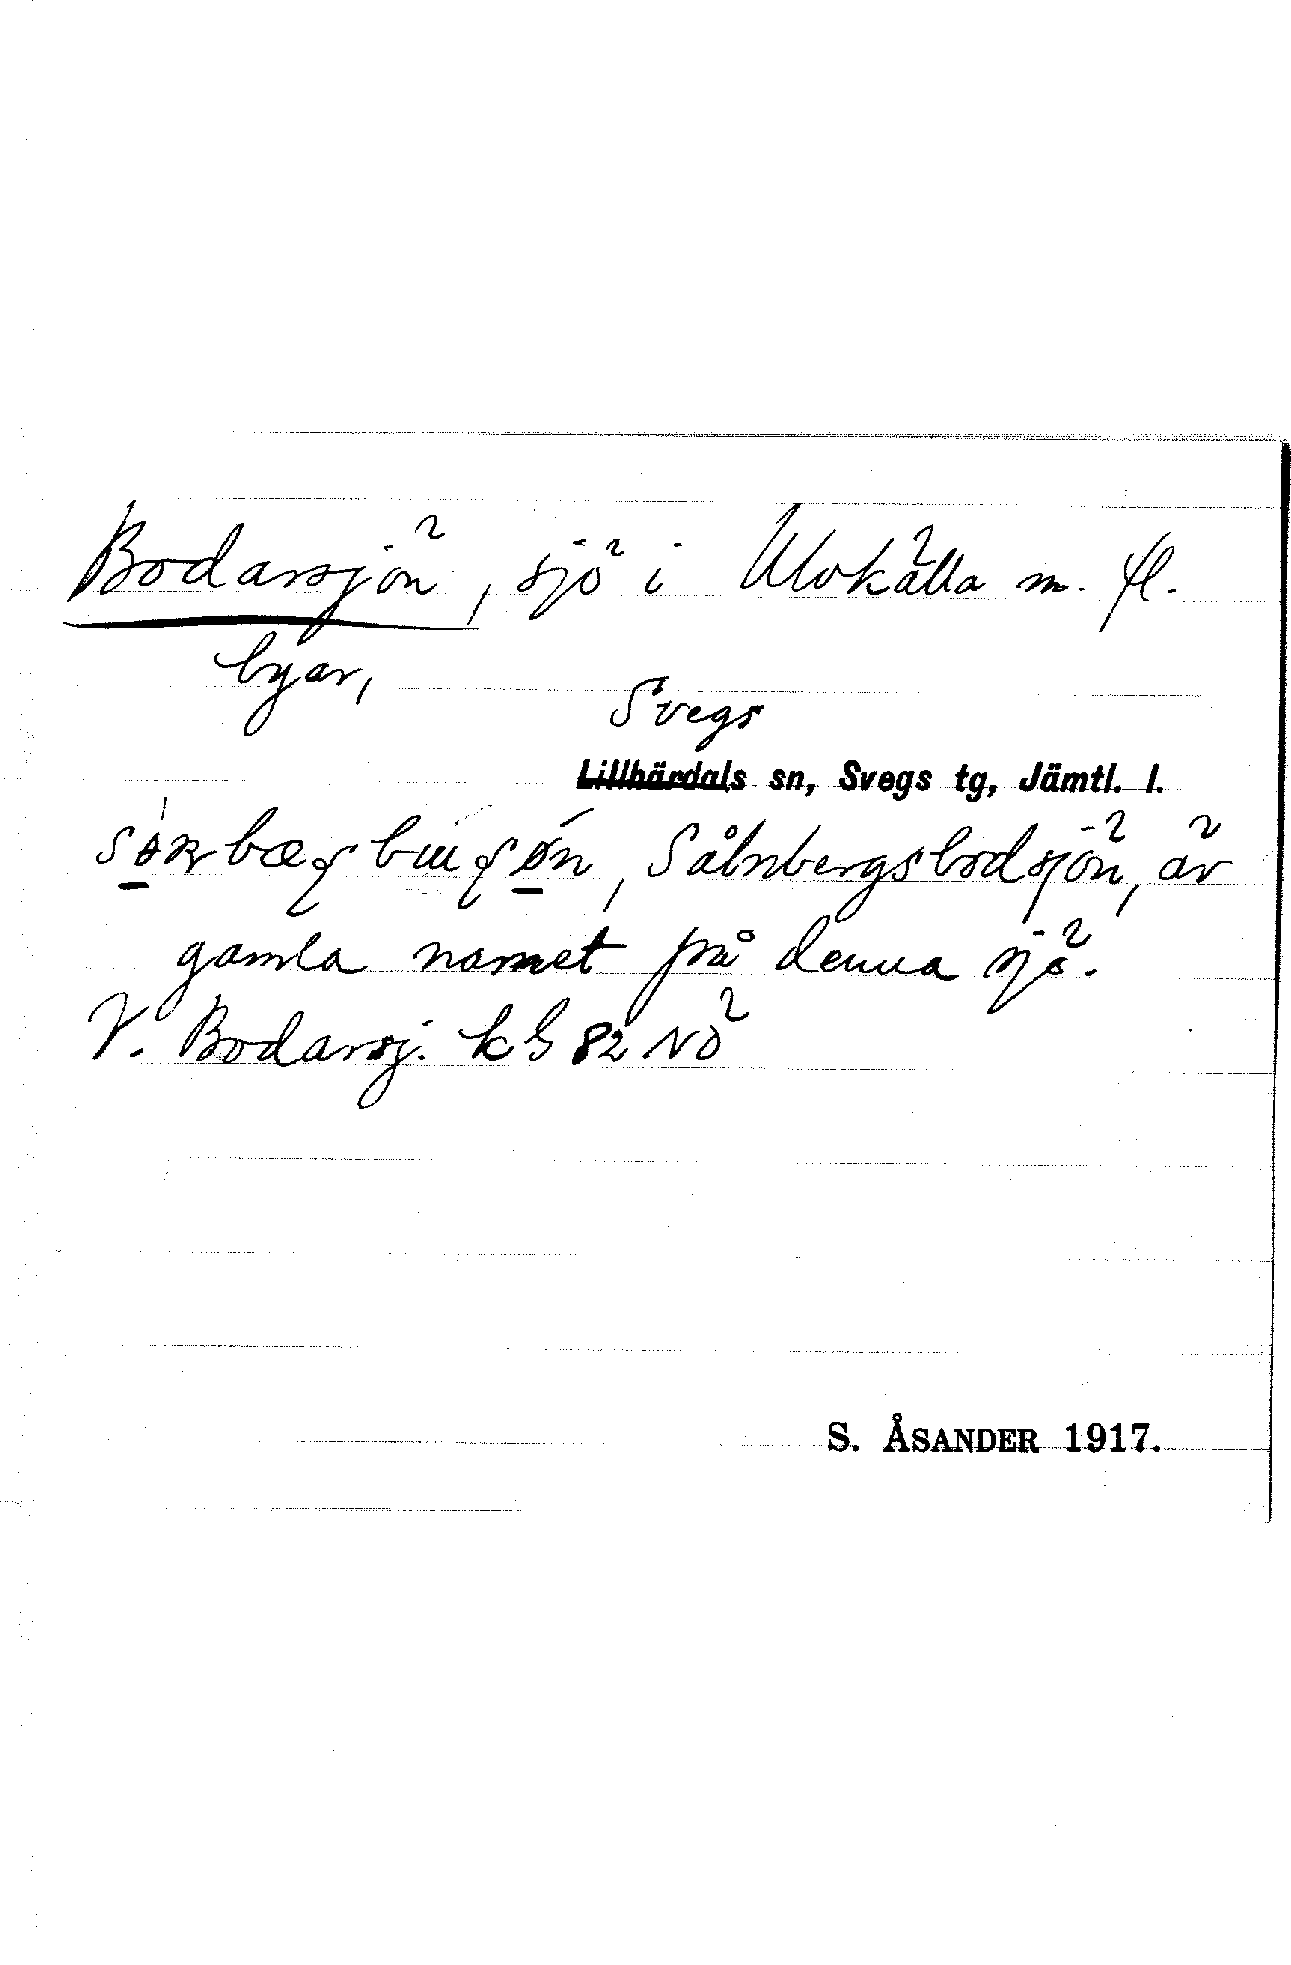 Bodarsjön, sjö i Ulvkälla m. fl.
byar,
Svegs
Lillhärdals sn, Svegs tg, Jämtl. l.
Sålnbergsbodsjön, är
gamla namnet på denna sjö.
V. Bodarsj. k G 82 NÖ
S. ÅSANDER 1917.